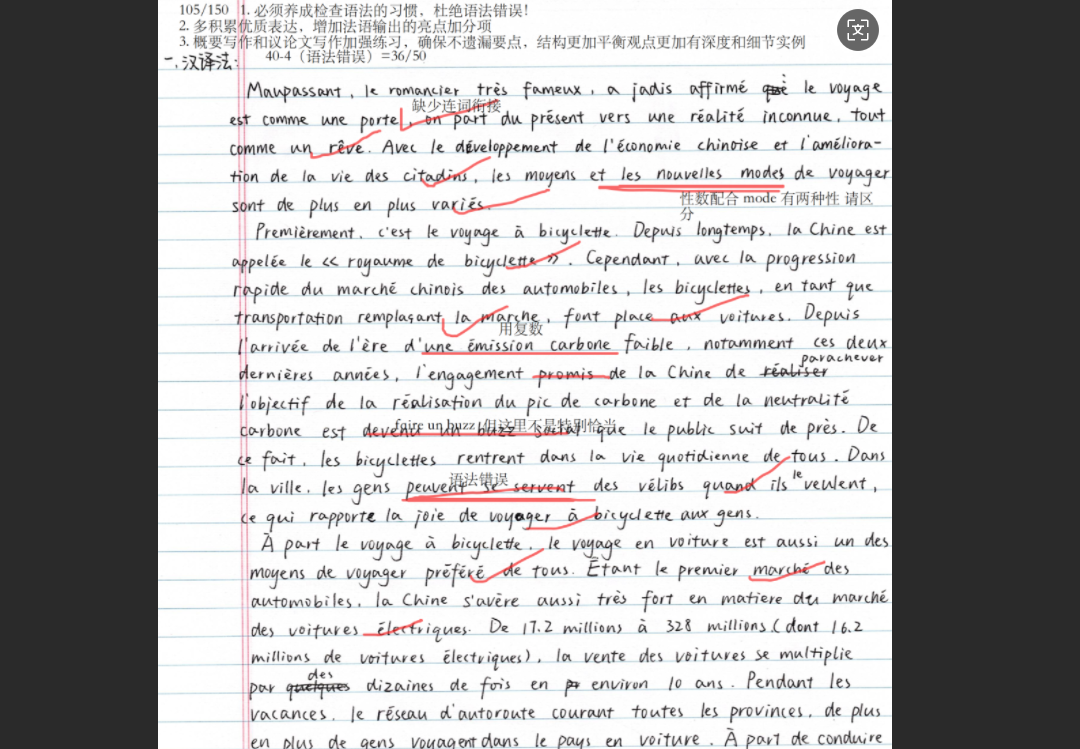 105/150 1. 必须养成检查语法的习惯，杜绝语法错误！
2. 多积累优质表达，增加法语输出的亮点加分项
3. 概要写作和议论文写作加强练习，确保不遗漏要点，结构更加平衡观点更加有深度和细节实例
一，汉译法：
40-4（语法错误）=36/50
Maupassant, le romancier très fameux, a jadis affirmé que le voyage
缺少连词衔接
est comme une porte, on part du présent vers une réalité inconnue, tout
comme un rêve. Avec le développement de l'économie chinoise et l'améliora-
tion de la vie des citadins, les moyens et les nouvelles modes de voyager
性数配合 mode 有两种性 请区
分
sont de plus en plus variés.
Premièrement, c'est le voyage à bicyclette. Depuis longtemps, la Chine est
appelée le << royaume de bicyclette >>. Cependant, avec la progression
rapide du marché chinois des automobiles, les bicyclettes, en tant que
transportation remplaçant la marche, font place aux voitures. Depuis
用复数
l'arrivée de l'ère d'une émission carbone faible, notamment ces deux
parachever
dernières années, l'engagement promis de la Chine de réaliser
l'objectif de la réalisation du pic de carbone et de la neutralité
faire un buzz 但这里不是特别恰当
carbone est devenu un buzz social que le public suit de près. De
ce fait, les bicyclettes rentrent dans la vie quotidienne de tous. Dans
语法错误
la ville, les gens peuvent se servent des vélibs quand ils le veulent,
ce qui rapporte la joie de voyager à bicyclette aux gens.
À part le voyage à bicyclette, le voyage en voiture est aussi un des
moyens de voyager préféré de tous. Étant le premier marché des
automobiles, la Chine s'avère aussi très fort en matiere du marché
des voitures électriques. De 17.2 millions à 328 millions (dont 16.2
millions de voitures électriques), la vente des voitures se multiplie
des
par quelques dizaines de fois en environ 10 ans. Pendant les
vacances, le réseau d'autoroute courant toutes les provinces, de plus
en plus de gens voyagent dans le pays en voiture. À part de conduire